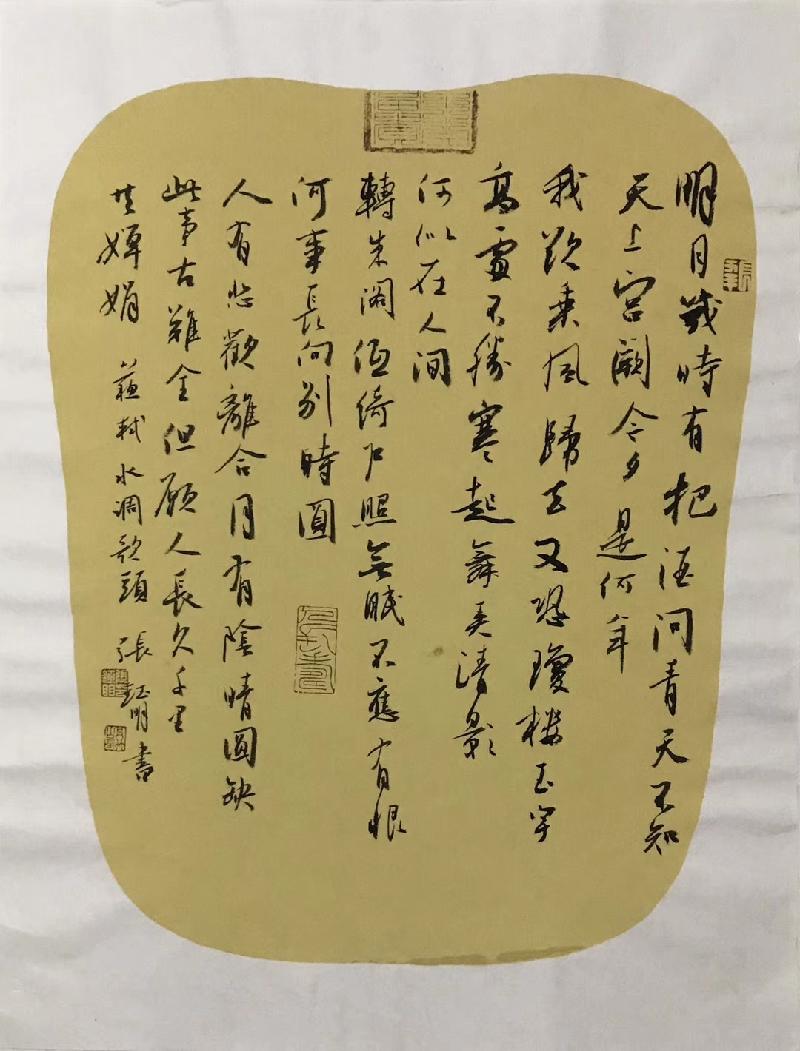 明月幾時有把酒問青天不知
天上宮闕今夕是何年
我欲乘風歸去又恐瓊樓玉宇
高處不勝寒起舞弄清影
何似在人間
轉朱閣低綺戶照無眠不應有恨
何事長向別時圓
人有悲歡離合月有陰晴圓缺
此事古難全但願人長久千里
共嬋娟 蘇軾水調歌頭 張鈺明書